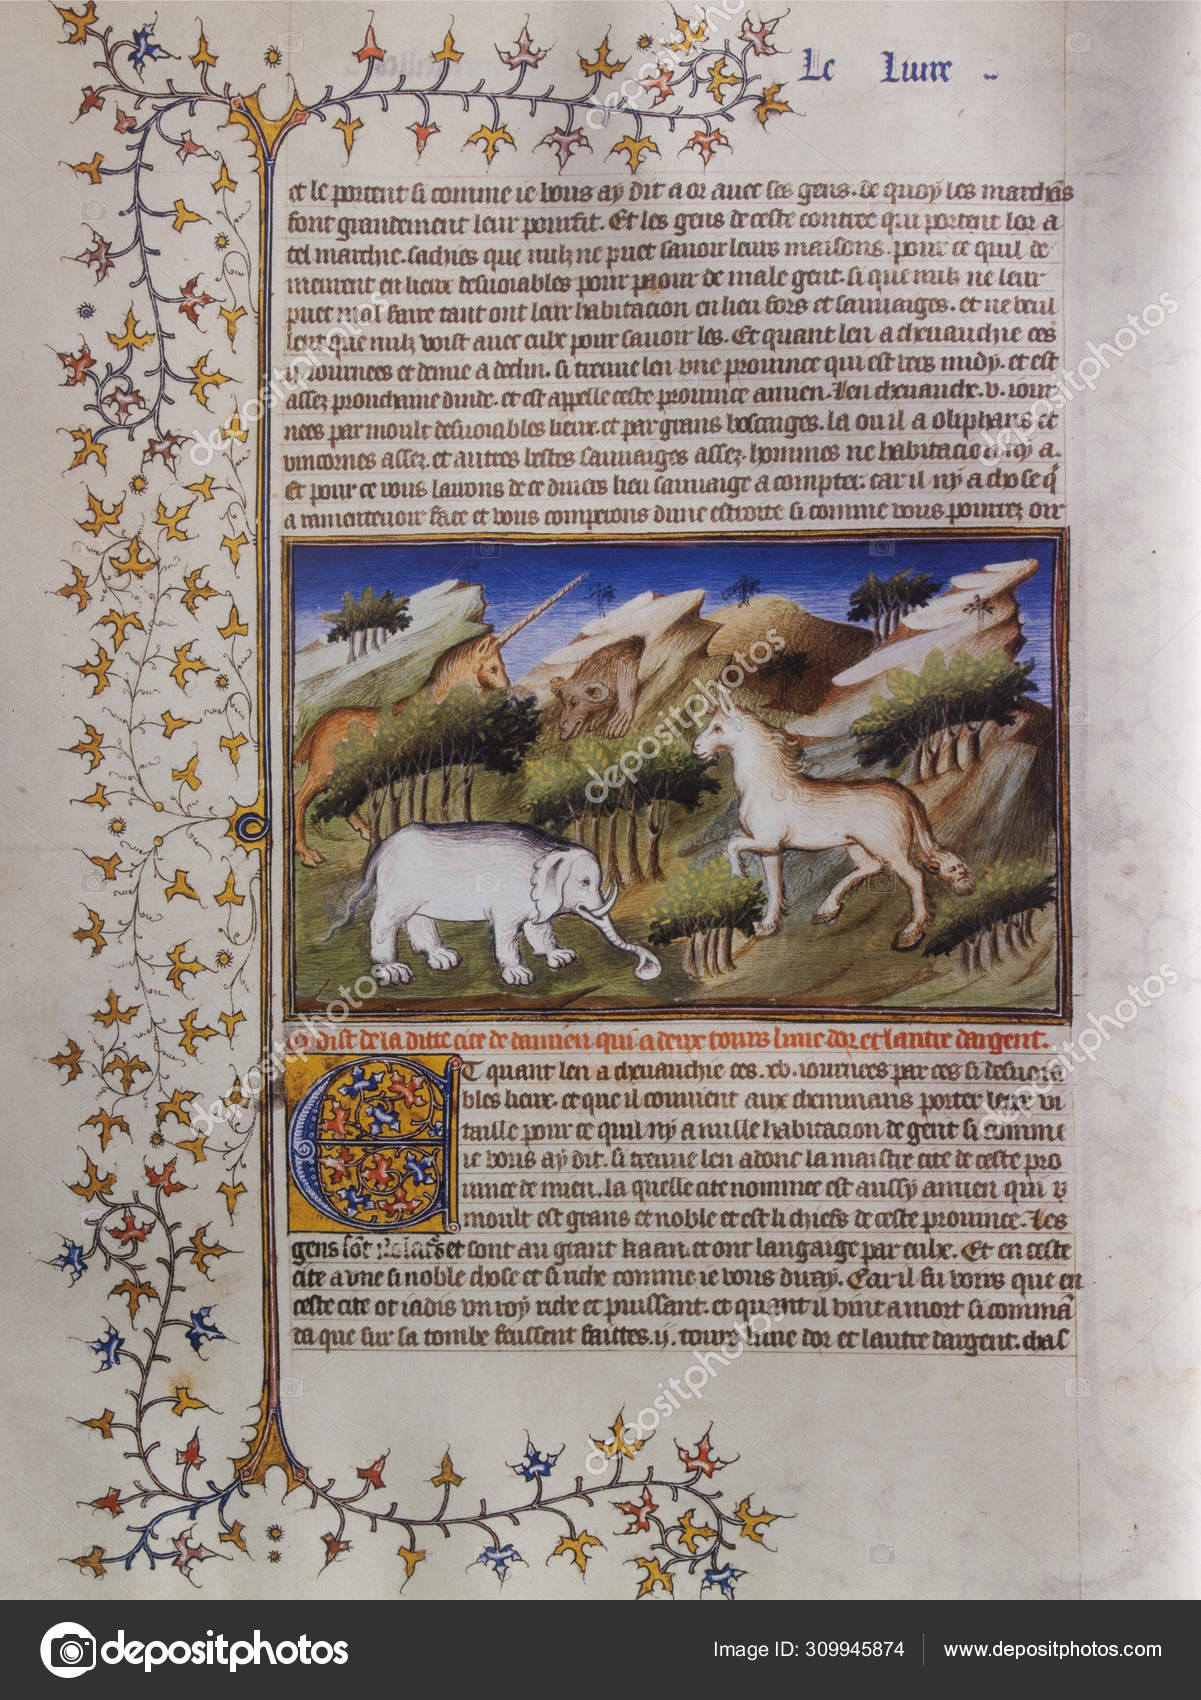 Le Liure
et le portent si comme ie vous ay dit a or auec ses gens. de quoy les marchãs
font grandement leur pourfit. Et les gens de ceste contree qui portent lor a
tel marchie. sachies que nulz ne puet sauoir leurs maisons. pour ce quil de
meurent en lieux desuoiables pour paour de male gent. si que nulz ne leur
puet mal faire tant ont leur habitacion en lieu fors et sauuaiges. et ne veul
lent que nulz voist auec eulx pour sauoir les. Et quant len a cheuauchie ces
ij iournees et demie a declin. si treuue len vne prouince qui est vers midy. et est
assez prouchaine dinde. et est appelle ceste prouince amien. Len cheuauche. v. iour
nees par moult desuoiables lieux. et par grans boscaiges. la ou il a oliphans et
vnicornes assez. et autres bestes sauuaiges assez. hommes ne habitacion ny a.
Et pour ce vous lairons de ce diuers lieu sauuaige a compter. car il ny a chose q̃
a ramenteuoir face et vous compterons dune estoire si comme vous pourrez oir
Cy dist de la ditte cite de damien qui a deux tours lune dor et lautre dargent.
ET quant len a cheuauchie ces. xv. iournees par ces si desuoia
bles lieux. et que il conuient aux chemmans porter leur vi
taille pour ce quil ny a nulle habitacion de gent si comme
ie vous ay dit. si treuue len adonc la maistre cite de ceste pro
uince de mien. la quelle cite nommee est aussy amien qui
moult est grans et noble et est li chiefs de ceste prouince. Les
gens sõt et sont au grant kaan. et ont langaige par eulx. Et en ceste
cite a vne si noble chose et si riche comme ie vous diray. Car il fu voirs que en
ceste cite ot iadis vn roy riche et puissant. et quant il vint a mort si commã
da que sur sa tombe feussent faittes. ij. tours lune dor et lautre dargent. chas
depositphotos
Image ID: 309945874
www.depositphotos.com